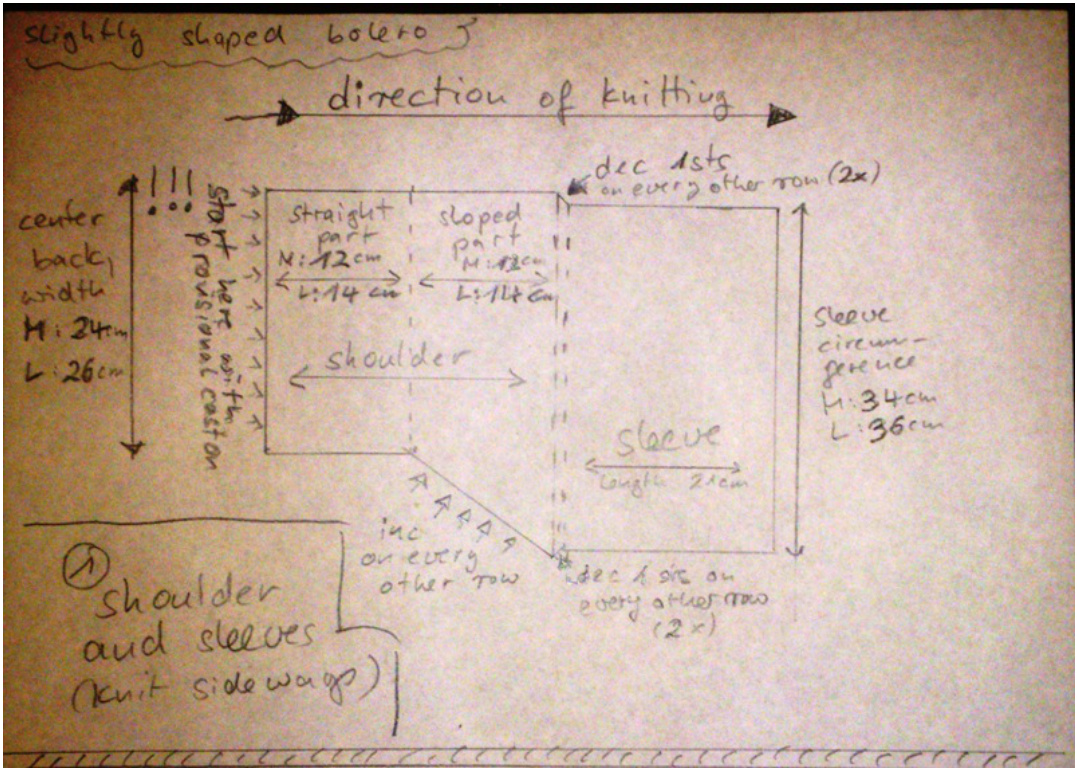 slightly shaped bolero
direction of knitting
center
back
width
M: 24cm
L: 26cm
!!!
start here with
provisional caston
straight
part
M: 12cm
L: 14 cm
sloped
part
M: 12cm
L: 14 cm
dec 1sts
on every other row (2x)
shoulder
sleeve
length 21cm
sleeve
circum-
ference
M: 34cm
L: 36cm
inc
on every
other row
dec 1 sts on
every other row
(2x)
1
shoulder
and sleeves
(knit sideways)